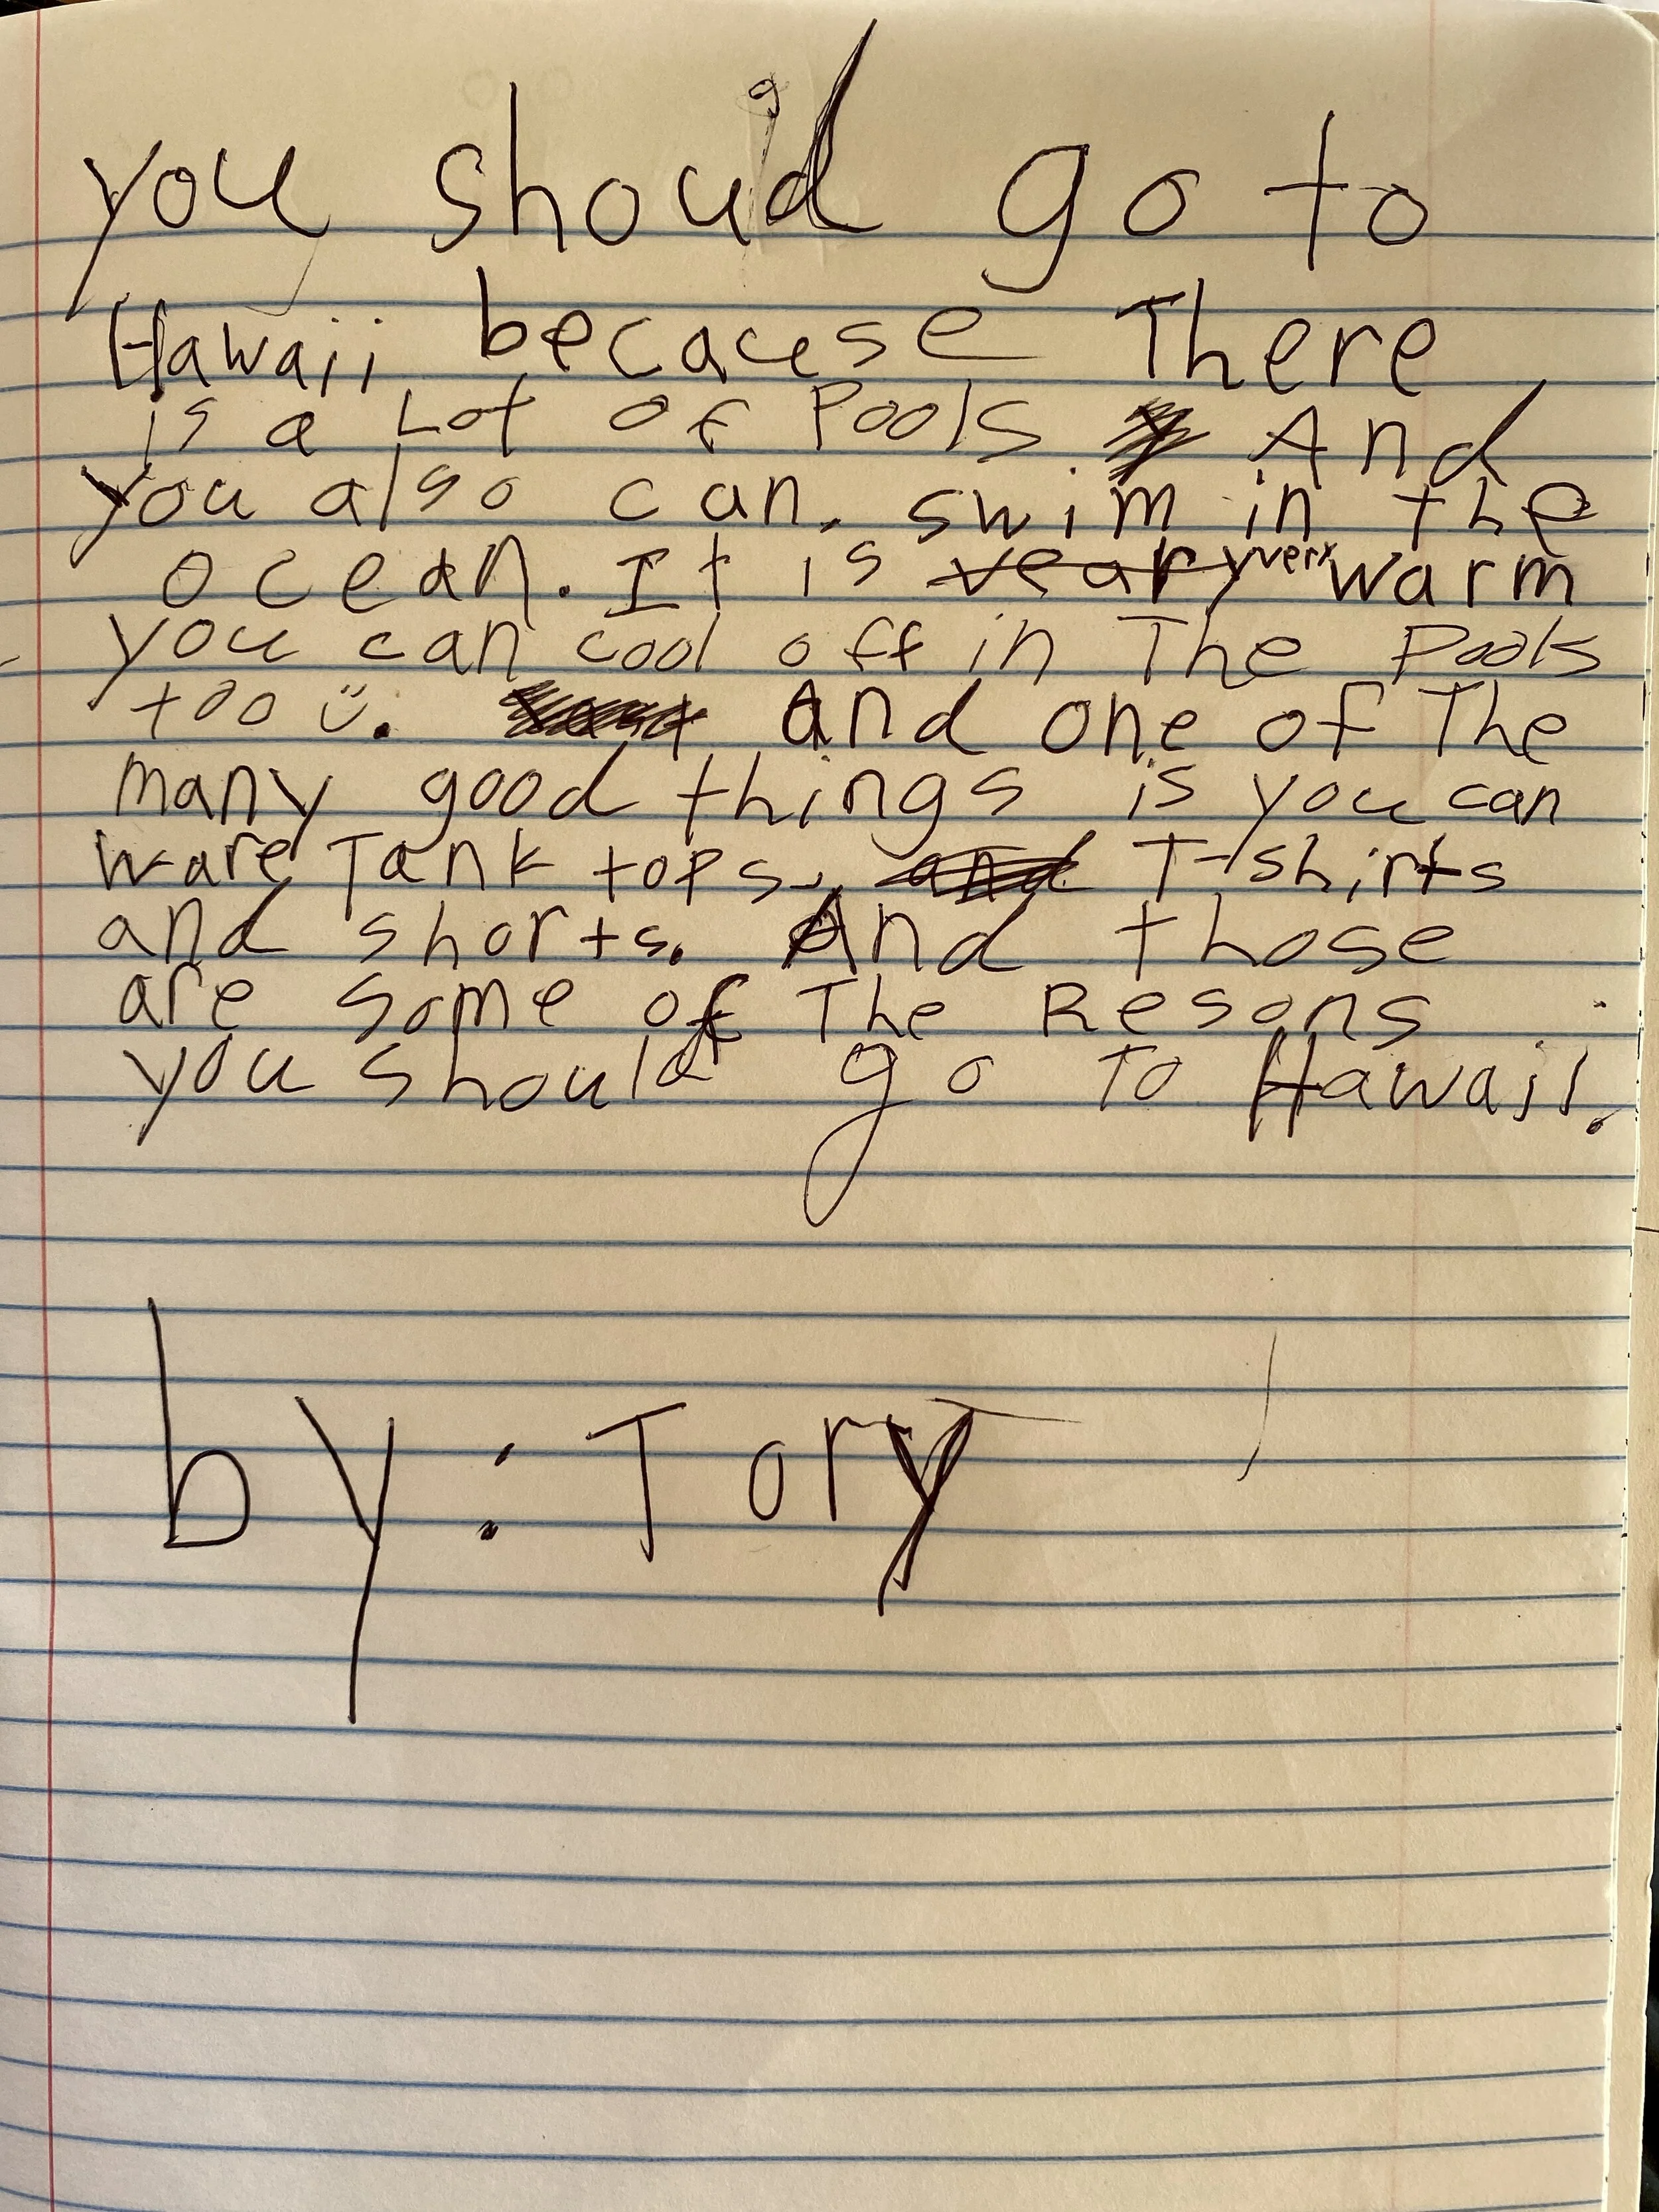 you should go to
Hawaii because There
is a Lot of Pools And
you also can. swim in the
ocean. It is veary very warm
you can cool off in The Pools
too ü. And one of The
many good things is you can
ware Tank tops, and T-shirts
and shorts. And those
are some of The Resons
you should go To Hawaii.
by: Tory